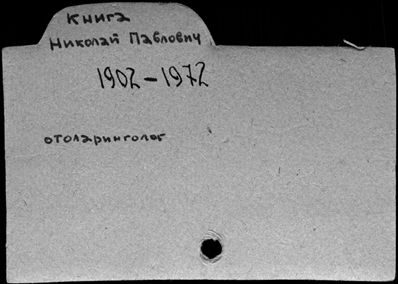 Книга
Николай Павлович
1902-1972
отоларинголог